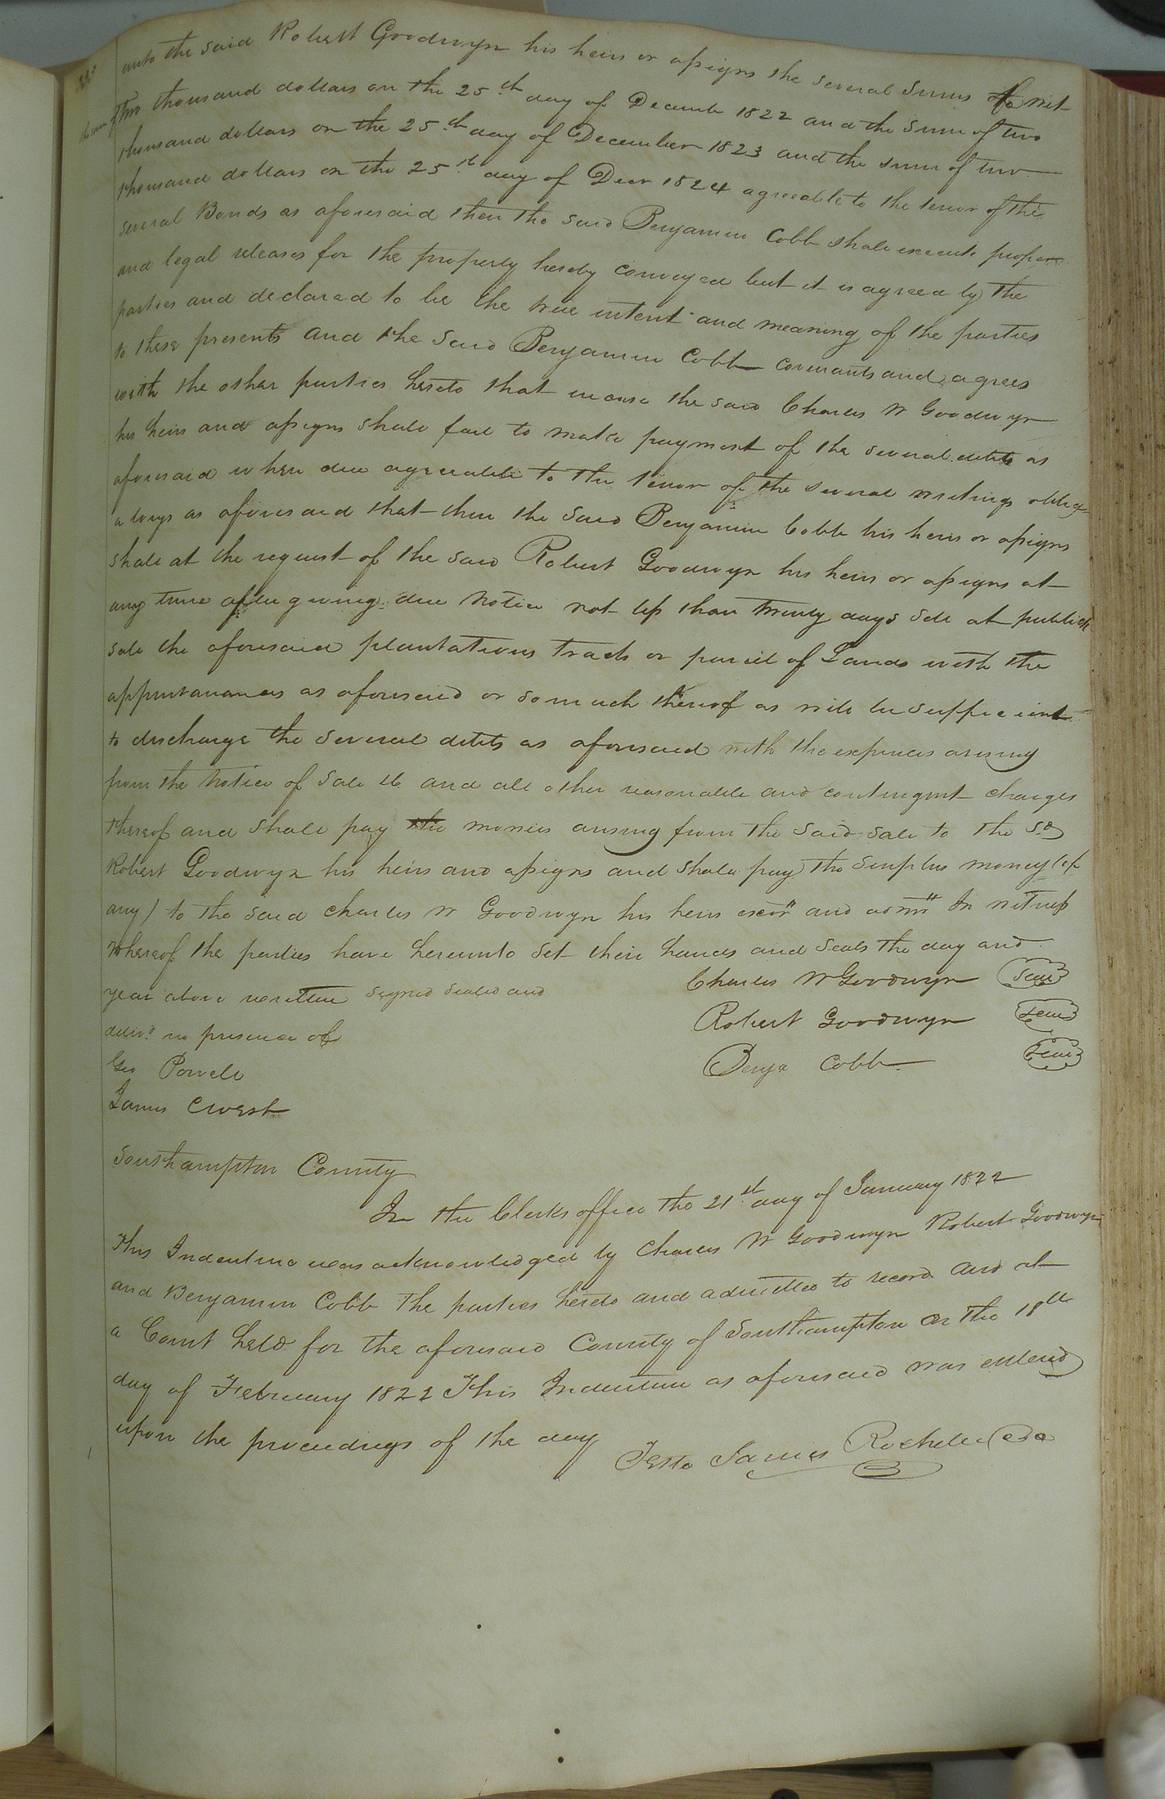 unto the said Robert Goodwyn his heirs or assigns the several sums to wit
the sum of two thousand dollars on the 25th day of Decemb 1822 and the sum of two
thousand dollars on the 25th day of December 1823 and the sum of two
thousand dollars on the 25th day of Decr 1824 agreeable to the tenor of the
several Bonds as aforesaid then the said Benjamin Cobb shall execute proper
and legal releases for the property hereby conveyed but it is agreed by the
parties and declared to be the true intent and meaning of the parties
to these presents and the said Benjamin Cobb covenants and agrees
with the other parties hereto that incase the said Charles W Goodwyn
his heirs and assigns shall fail to make payment of the several debts as
aforesaid when due agreeable to the tenor of the several writings oblig
atorys as aforesaid that then the said Benjamin Cobb his heirs or assigns
shall at the request of the said Robert Goodwyn his heirs or assigns at
any time after giving due notice not less than twenty days sell at publick
sale the aforesaid plantations tracts or parcel of Lands with the
appurtanances as aforesaid or so much thereof as will be sufficient
to discharge the several debts as aforesaid with the expences arising
from the notice of sale &c and all other reasonable and contingent charges
thereof and shall pay the monies arising from the said sale to the sd
Robert Goodwyn his heirs and assigns and shall pay the surplus money (if
any) to the said Charles W Goodwyn his heirs exors and admrs In witness
whereof the parties have hereunto set their hands and seals the day and
year above written signed sealed and
Charles W Goodwyn Seal
delivd in presence of
Robert Goodwyn Seal
Geo Powell
Benja Cobb Seal
James C West
Southampton County
In the Clerks office the 21st day of January 1822
This Indenture was acknowledged by Charles W Goodwyn Robert Goodwyn
and Benjamin Cobb the parties hereto and admitted to record and at
a Court held for the aforesaid County of Southampton on the 18th
day of February 1822 This Indenture as aforesaid was entered
upon the proceedings of the day
Teste James Rochelle